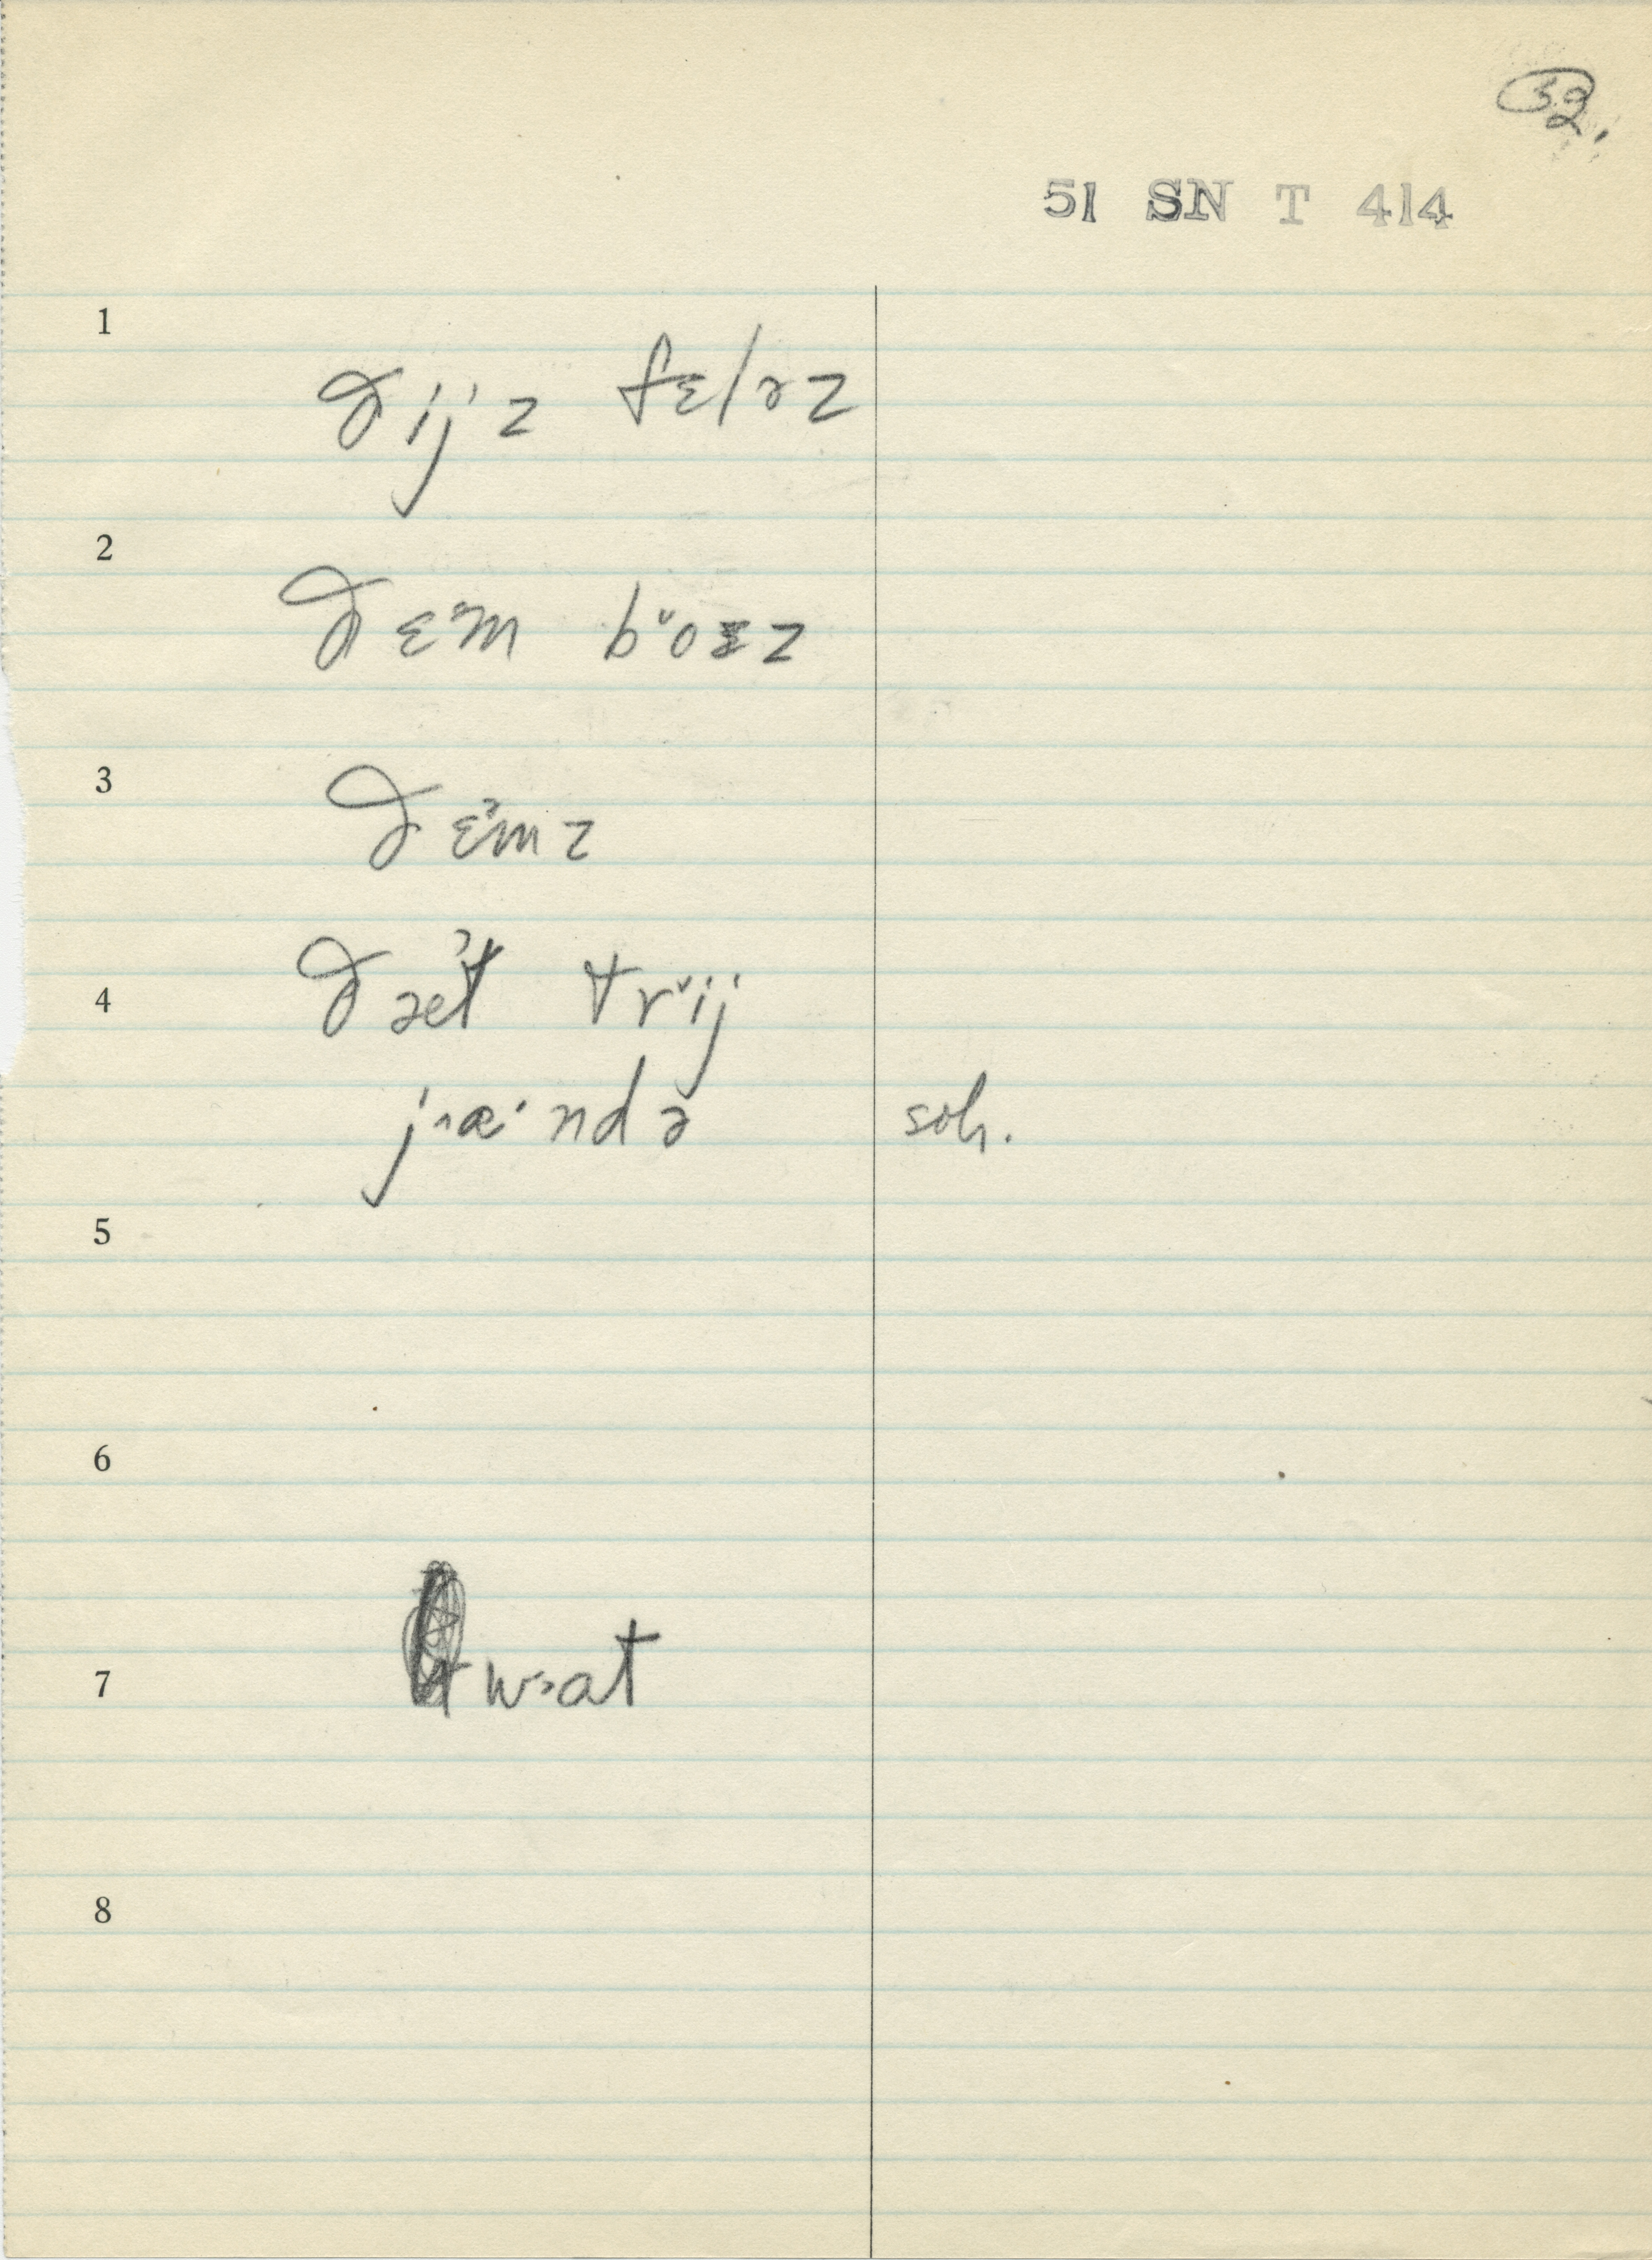 32.
51 SN T 414
1
ðij'z fɛləz
2
ðɛ˃m b˅oɪz
3
ðɛ˃mz
4
ðæ˃t tr˅ij
j˄æ·ndə soh.
5
6
7 w˃at
8